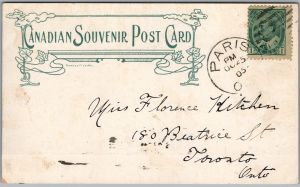 CANADIAN SOUVENIR POST CARD
PARIS
PM
OC 25
05
O
Miss Florence Kitchen
180 Beatrice St
Toronto
Onto